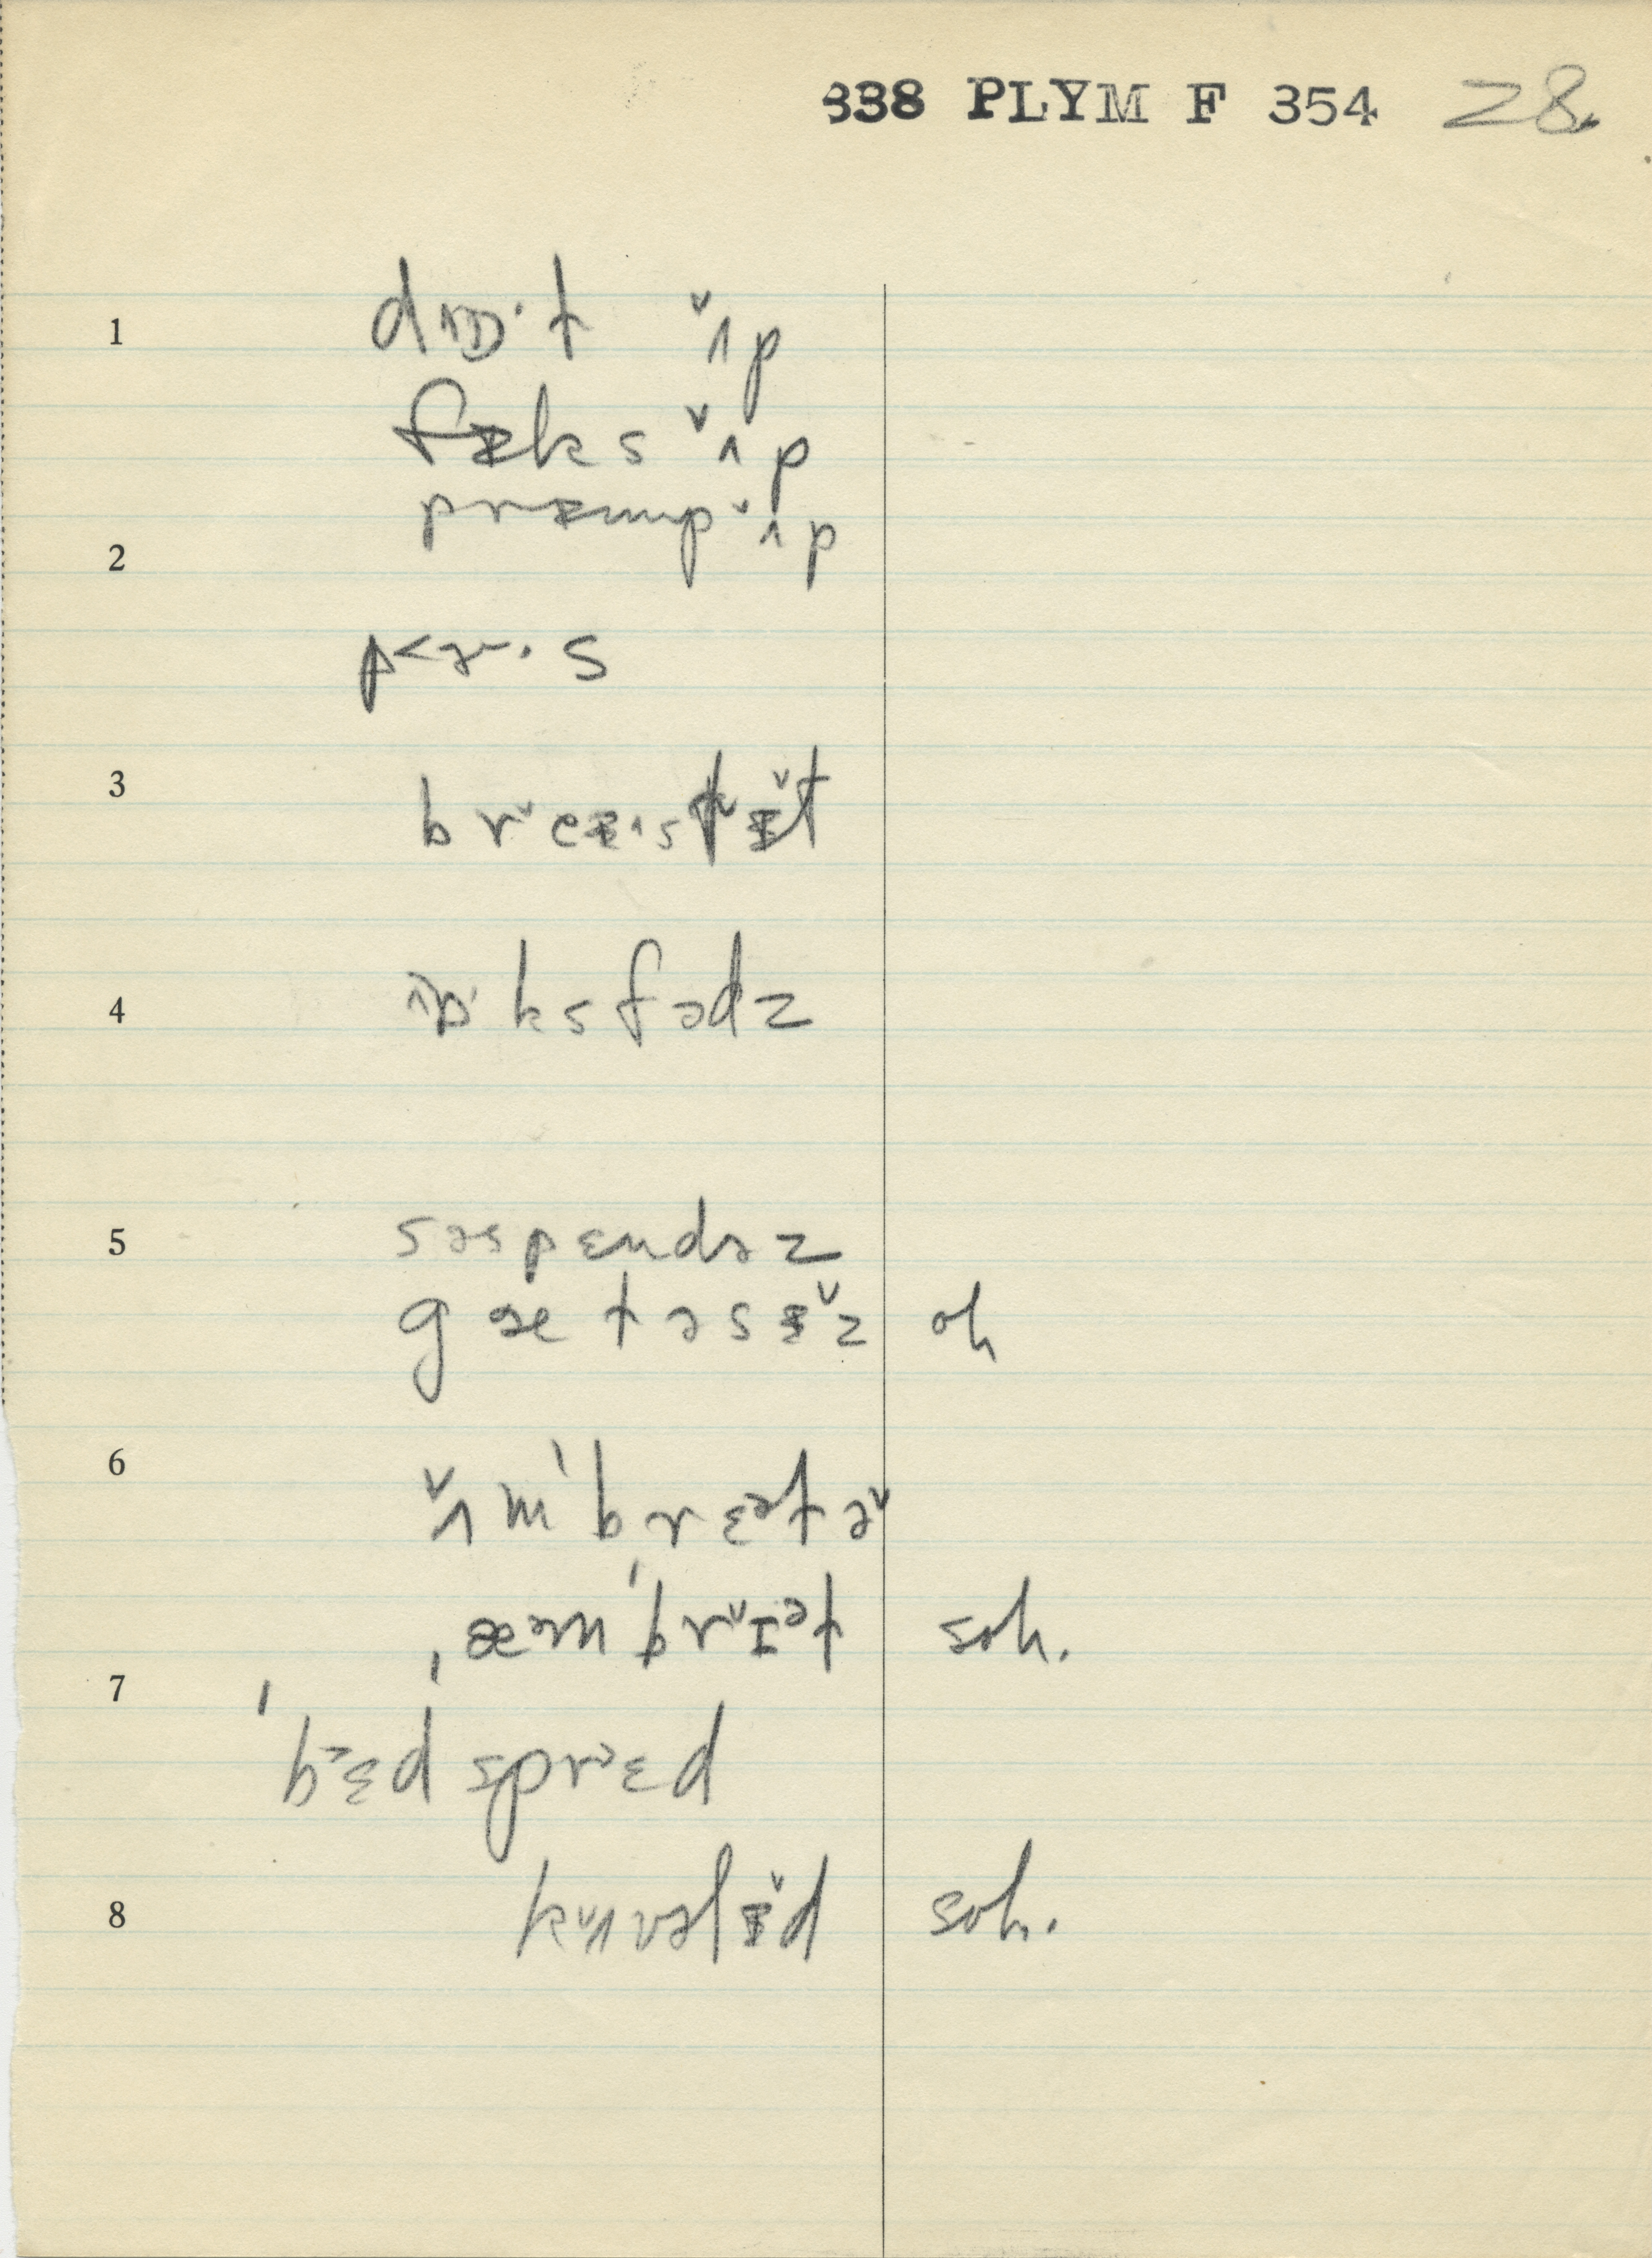 338 PLYM F 354 28.
1 dɒ·t ʌ̌p
fɪ̵ks ʌ̌p
2 prɪ̵mp ʌ̌p
p<ɚ·s
3 brˇeɪ̵·sɫɪ̵̌t
4 ɒ·ksfədz
5 səspɛndəz
gætəsɪ̵̌z oh
6 ʌ̌m'brɛᵊtə̌
ˌæᵊm'brˇɪᵊt soh.
7 'bᵊɛdsprᵊɛd
8 kʌ̌vəlɪ̵̌d soh.